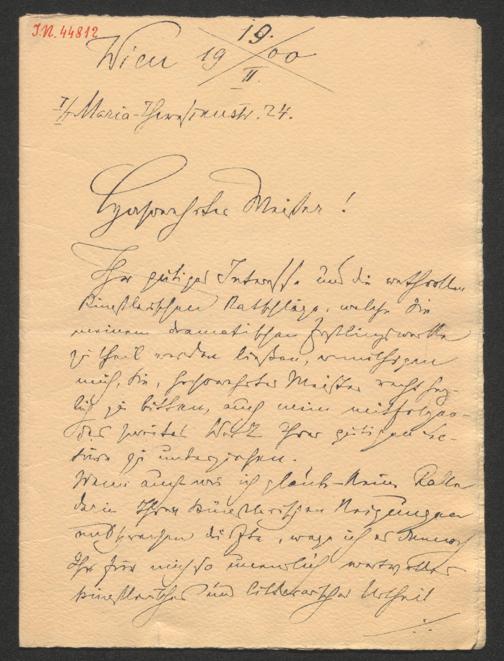 I.N. 44812
Wien 19 19./II. 00
I/ Maria-Theresienstr. 24.
Hochverehrter Meister!
Ihr gütiges Interesse und die werthvollen
künstlerischen Ratschläge, welche Sie
meinem dramatischen Erstlingswerke
zu theil werden ließen, ermuthigen
mich, Sie, hochverehrter Meister recht herz-
lich zu bitten, auch mein mitfolgen-
des zweites Werk Ihrer gütigen Lec-
türe zu unterziehen.
Wenn auch wie ich glaube keine Rolle
darin Ihren künstlerischen Neigungen
entsprechen dürfte, wage ich es dennoch
Ihr für mich so unendlich wertvolles
künstlerisches und litterarisches Urtheil